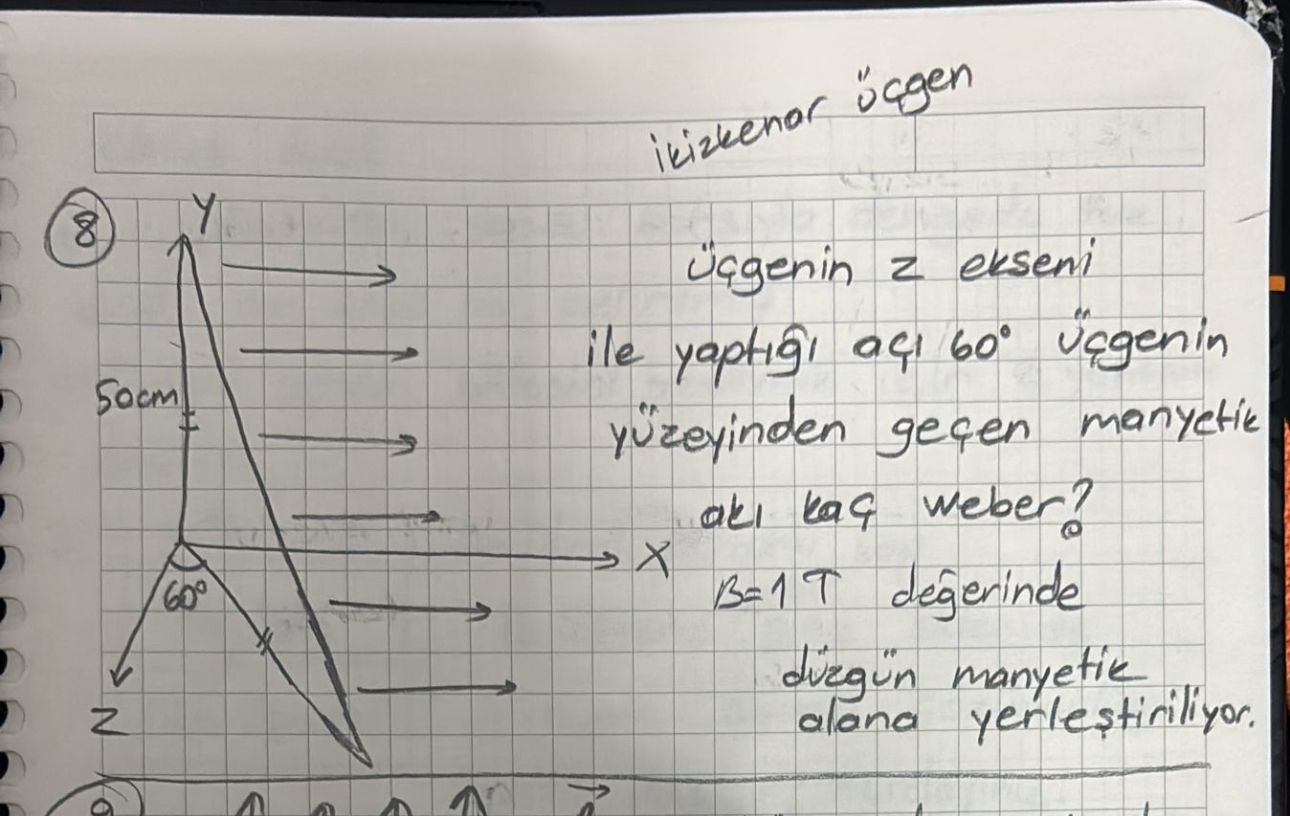 ikizkenar üçgen
8
Y
üçgenin z ekseni
ile yaptığı açı 60° üçgenin
50cm
yüzeyinden geçen manyetik
akı kaç weber?
X
60°
B=1 T değerinde
düzgün manyetik
Z
alana yerleştiriliyor.
9